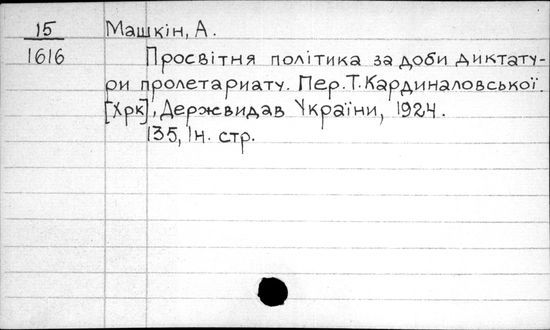 15 Машкін, А.
1616 Просвітня політика за доби диктату-
ри пролетариату. Пер. Т. Кардиналовської.
[Хрк], Держвидав України, 1924.
135, Iн. стр.